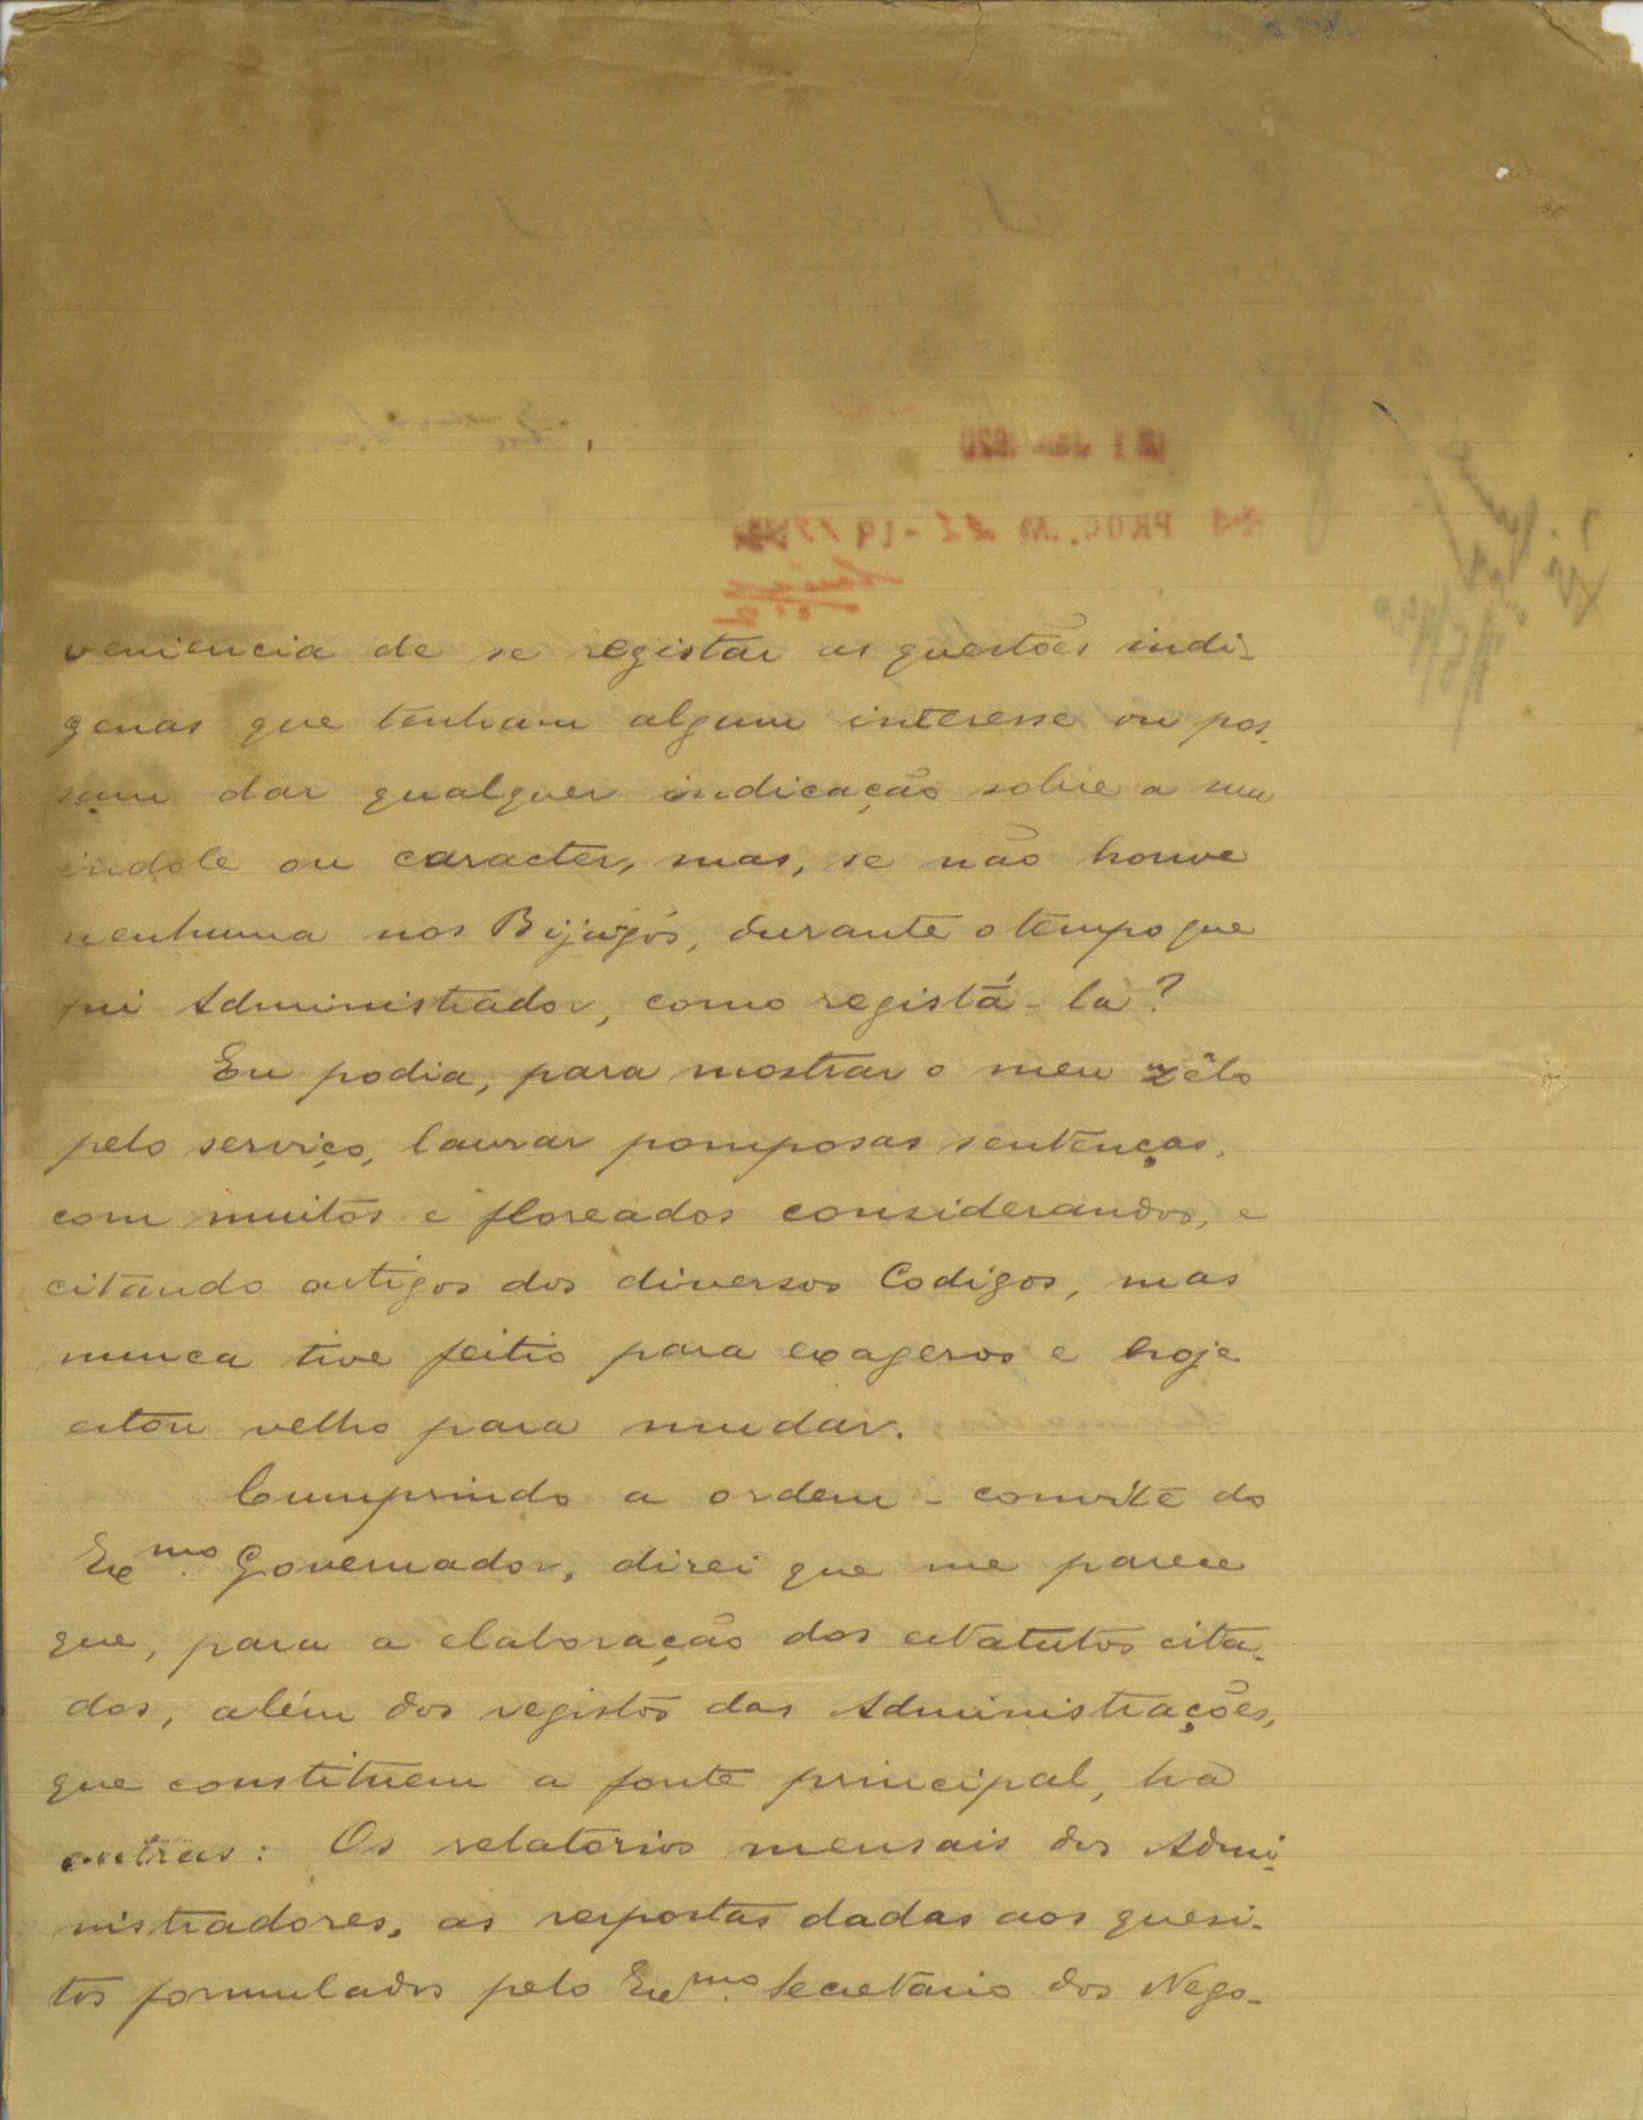 veniencia de se registar as questões indi-
genas que tenham algum interesse ou pos-
sam dar qualquer indicação sobre a sua
indole ou caracter, mas, se não houve
nenhuma nos Bijagós, durante o tempo que
fui Administrador, como registá-la?
Eu podia, para mostrar o meu zêlo
pelo serviço, lavrar pomposas sentenças,
com muitos e floreados considerandos, e
citando artigos dos diversos Codigos, mas
nunca tive feitio para exageros e hoje
estou velho para mudar.
Cumprindo a ordem - convite do
Exmo. Governador, direi que me parece
que, para a elaboração dos estatutos cita-
dos, além dos registos das Administrações,
que constituem a fonte principal, ha
outras: Os relatorios mensais dos Admi-
nistradores, as respostas dadas aos quesi-
tos formulados pelo Exmo. Secretario dos Nego-